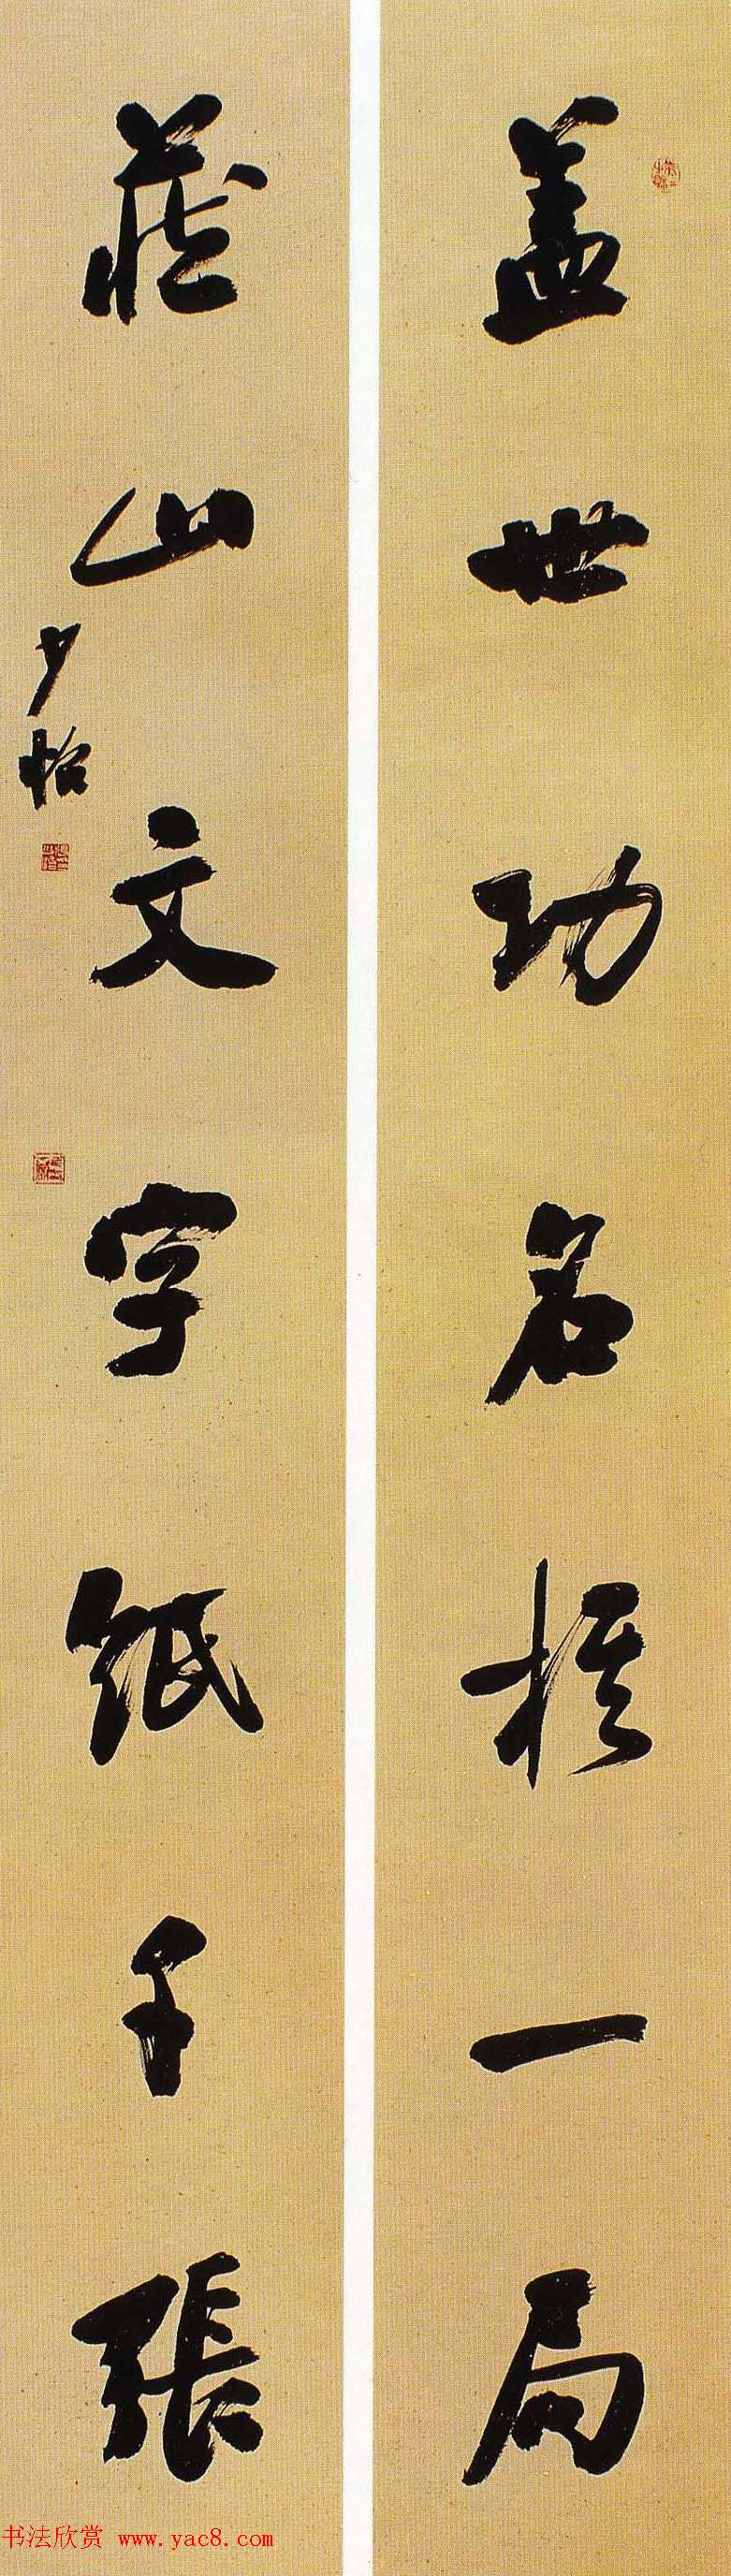 盖世功名棋一局
藏山文字纸千張
少怡
书法欣赏 www.yac8.com